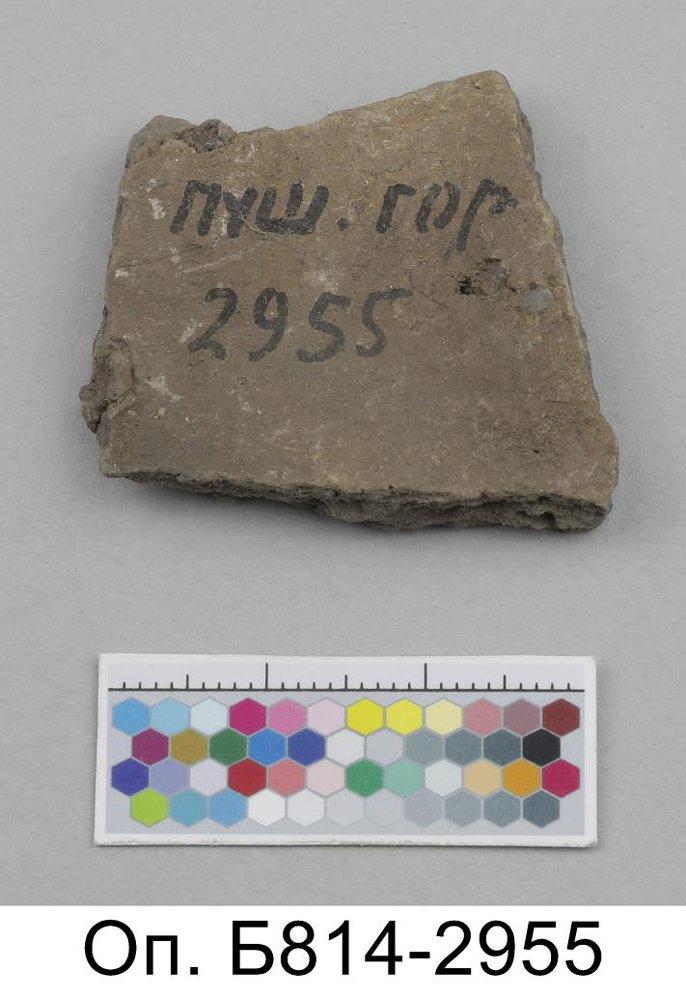 ПУШ. ГОР
2955
Оп. Б814-2955